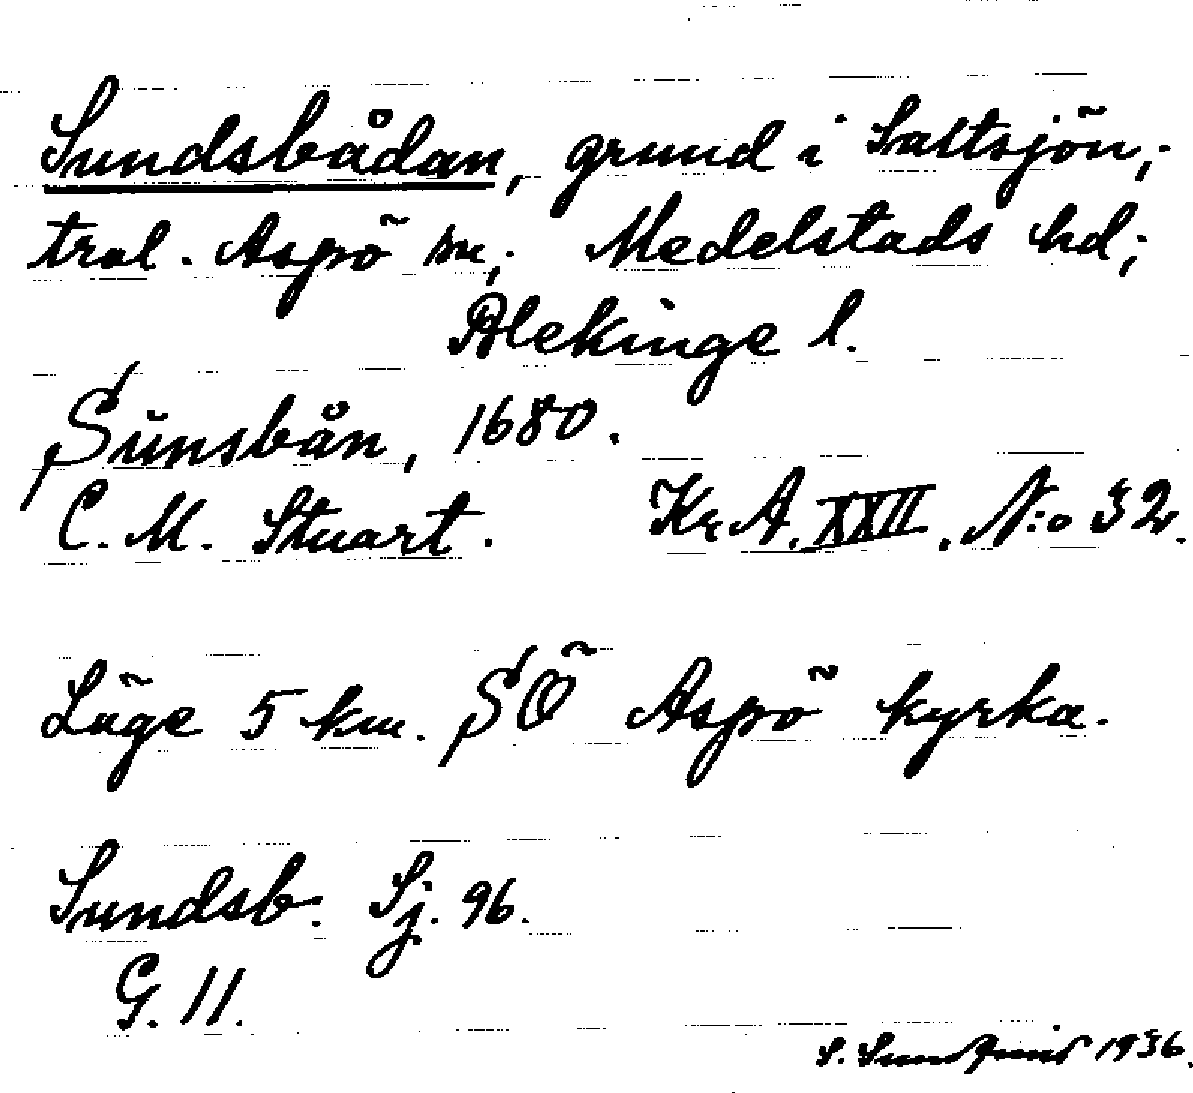 Sundsbådan, grund i Saltsjön;
tral. Aspö sn; Medelstads hd;
Blekinge l.
Sünsbån, 1680.
C. M. Stuart. Kr. A. XXII. N:o 32.
Läge 5 km. SÖ Aspö kyrka.
Sundsb: Sj. 96.
G. 11.
S. Sundquist 1936.